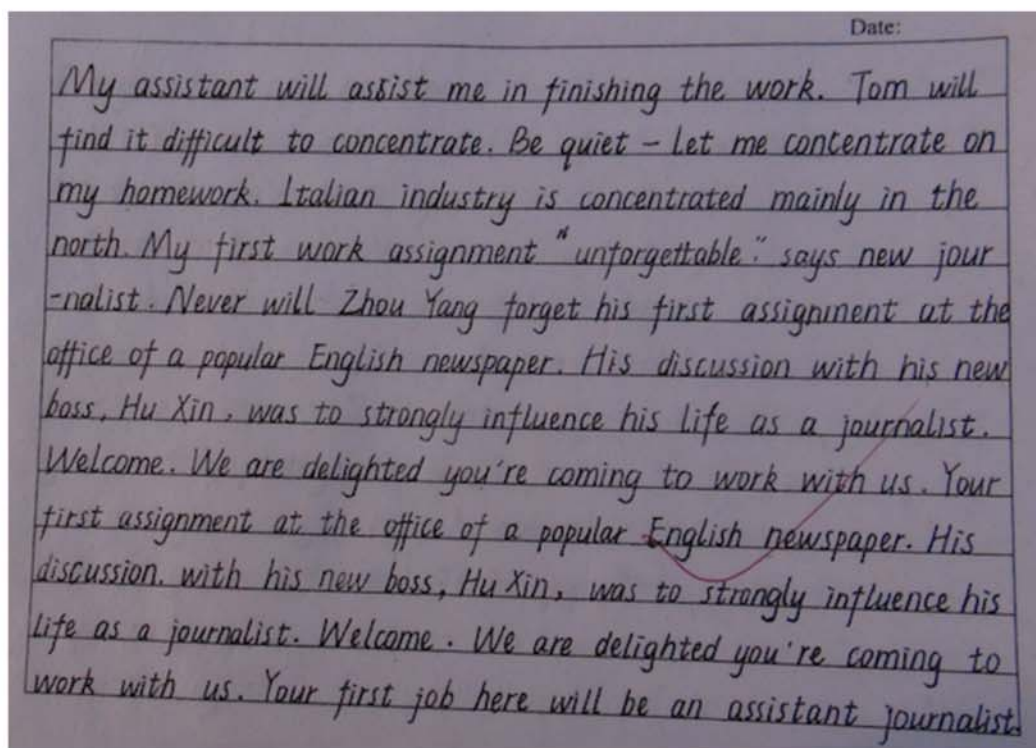 Date:
My assistant will assist me in finishing the work. Tom will
find it difficult to concentrate. Be quiet - Let me concentrate on
my homework. Italian industry is concentrated mainly in the
north. My first work assignment "unforgettable". says new jour
-nalist. Never will Zhou Yang forget his first assignment at the
office of a popular English newspaper. His discussion with his new
boss, Hu Xin, was to strongly influence his life as a journalist.
Welcome. We are delighted you're coming to work with us. Your
first assignment at the office of a popular English newspaper. His
discussion. with his new boss, Hu Xin, was to strongly influence his
life as a journalist. Welcome. We are delighted you're coming to
work with us. Your first job here will be an assistant journalist.